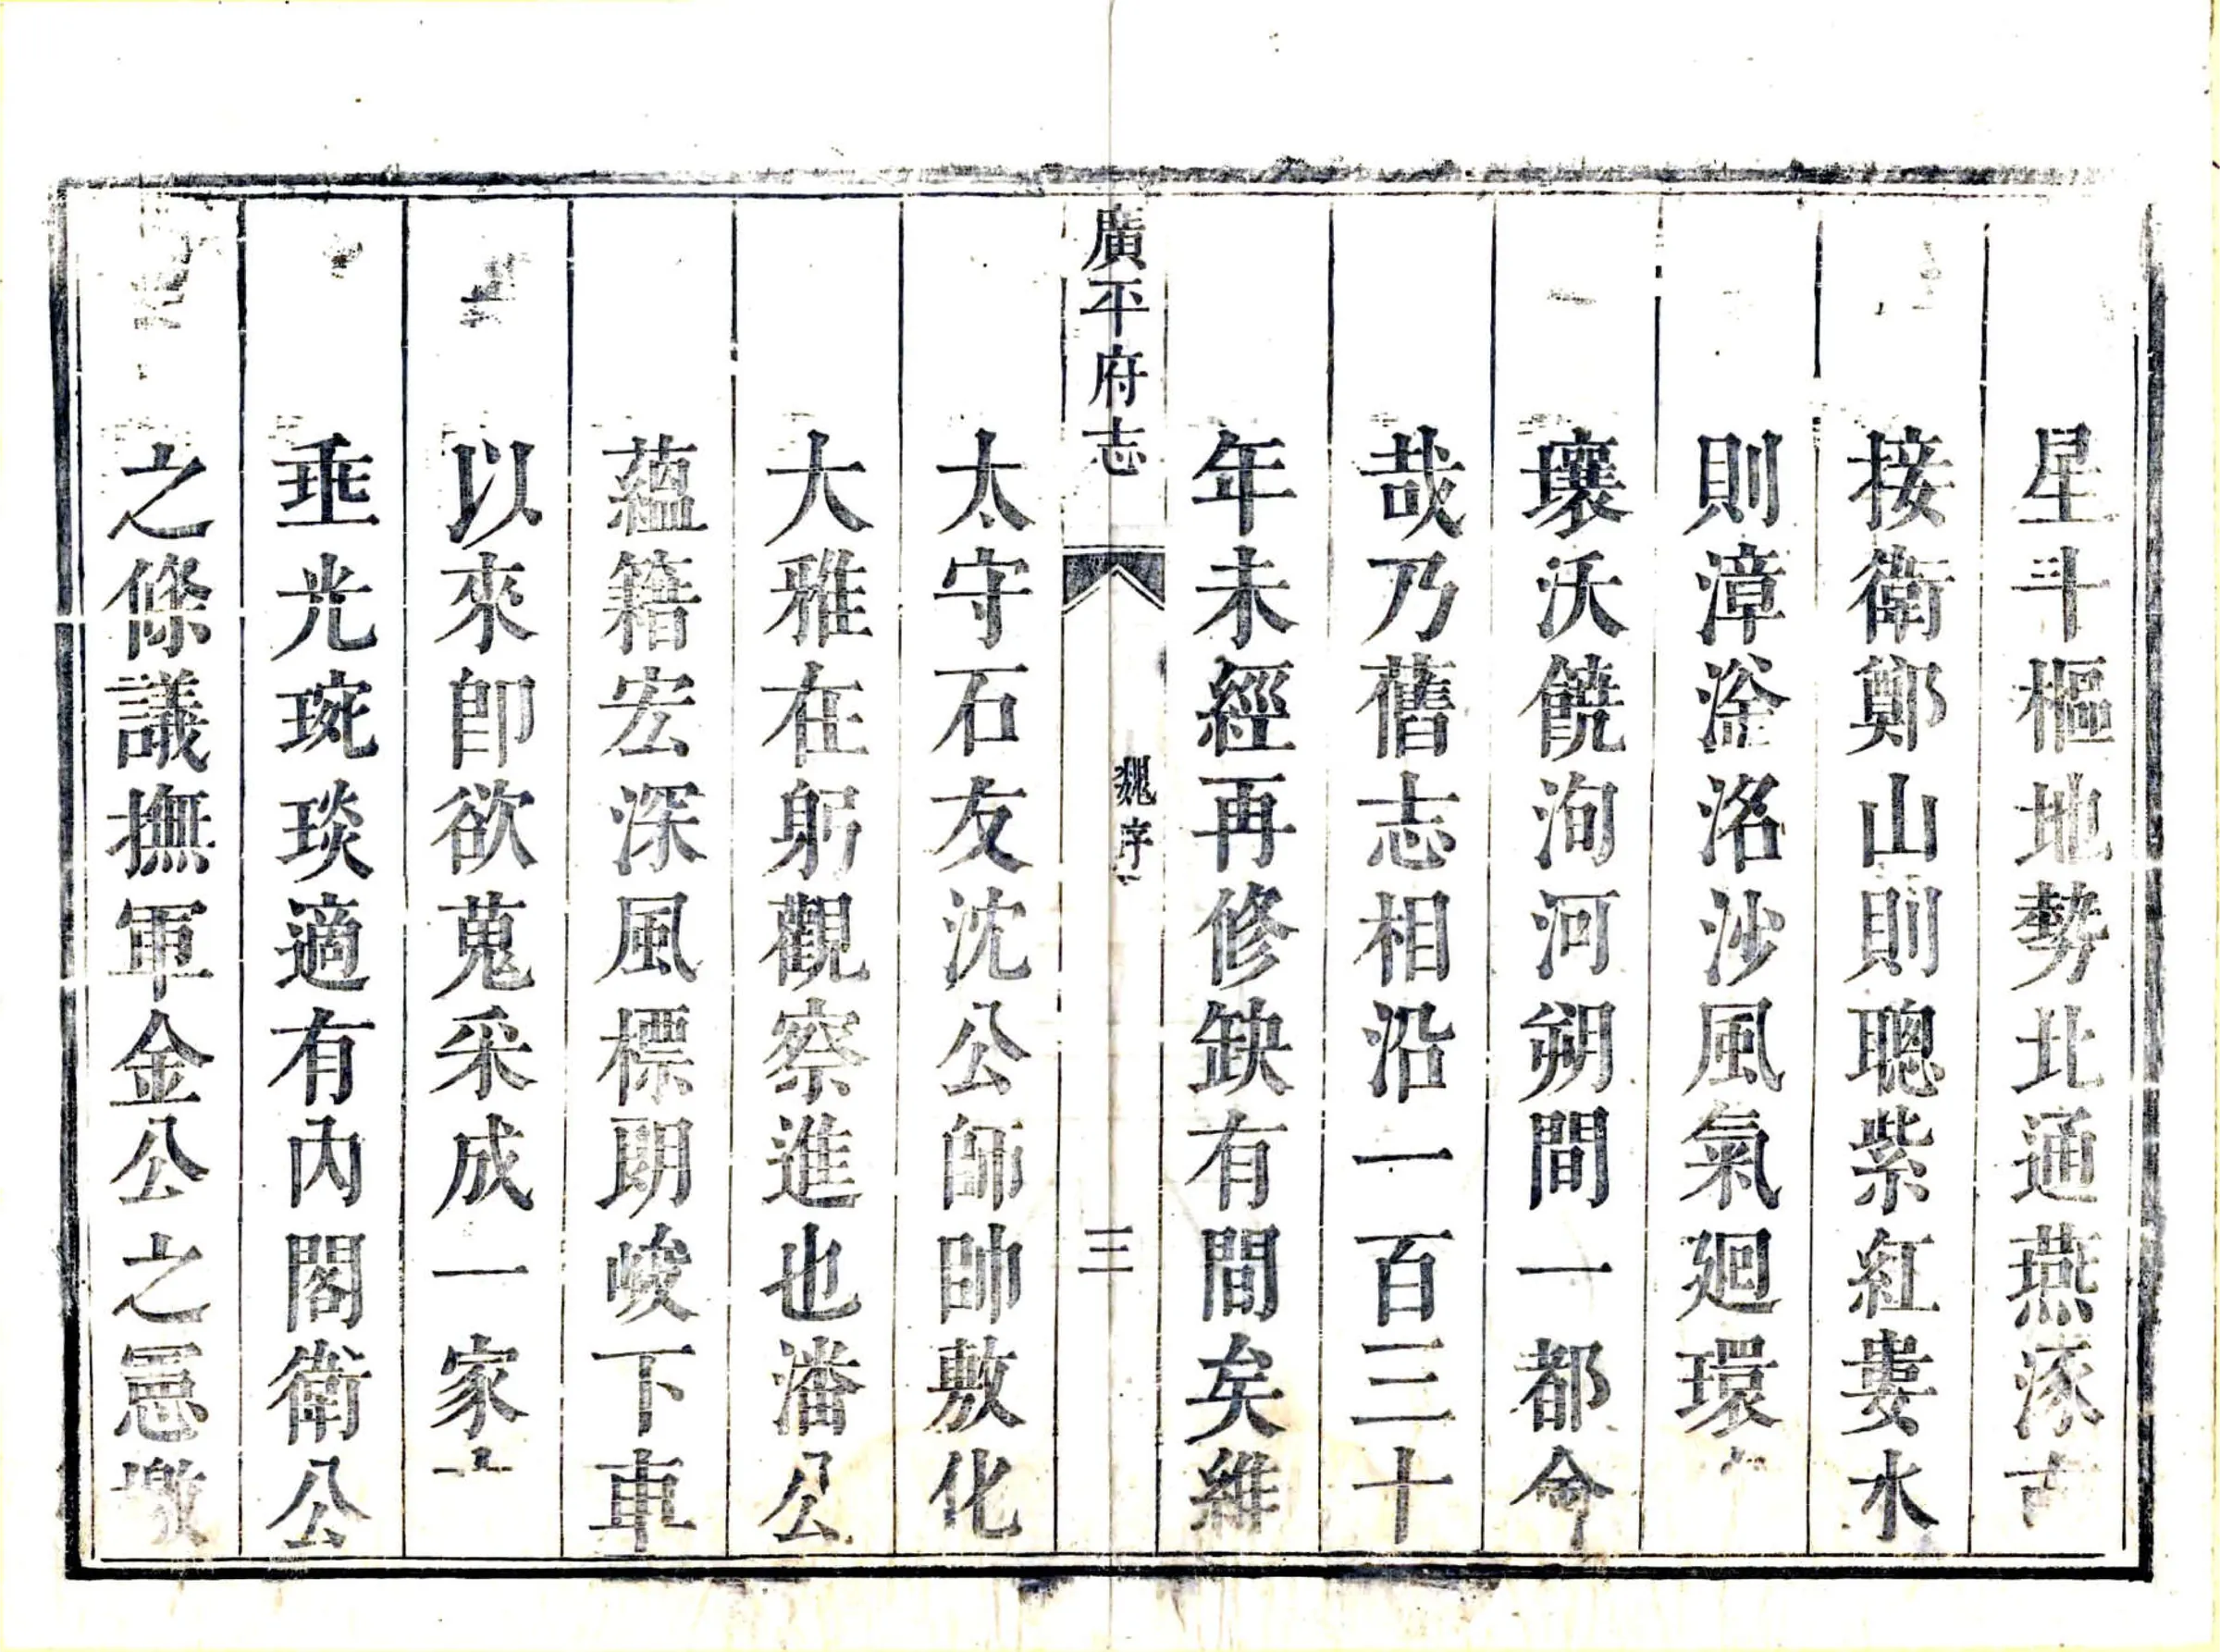 星斗樞地勢北通燕涿
接衛鄭山則聰紫紅婁水
則漳滏洺沙風氣廻環
壤沃饒洵河朔間一都會
哉乃舊志相沿一百三十
年未經再修缺有間矣維
廣平府志
魏序
三
太守石友沈公師帥敷化
大雅在躬觀察進也潘公
蘊籍宏深風標朗峻下車
以來卽欲蒐采成一家
垂光琬琰適有內閣衛公
之條議撫軍金公之憲檄